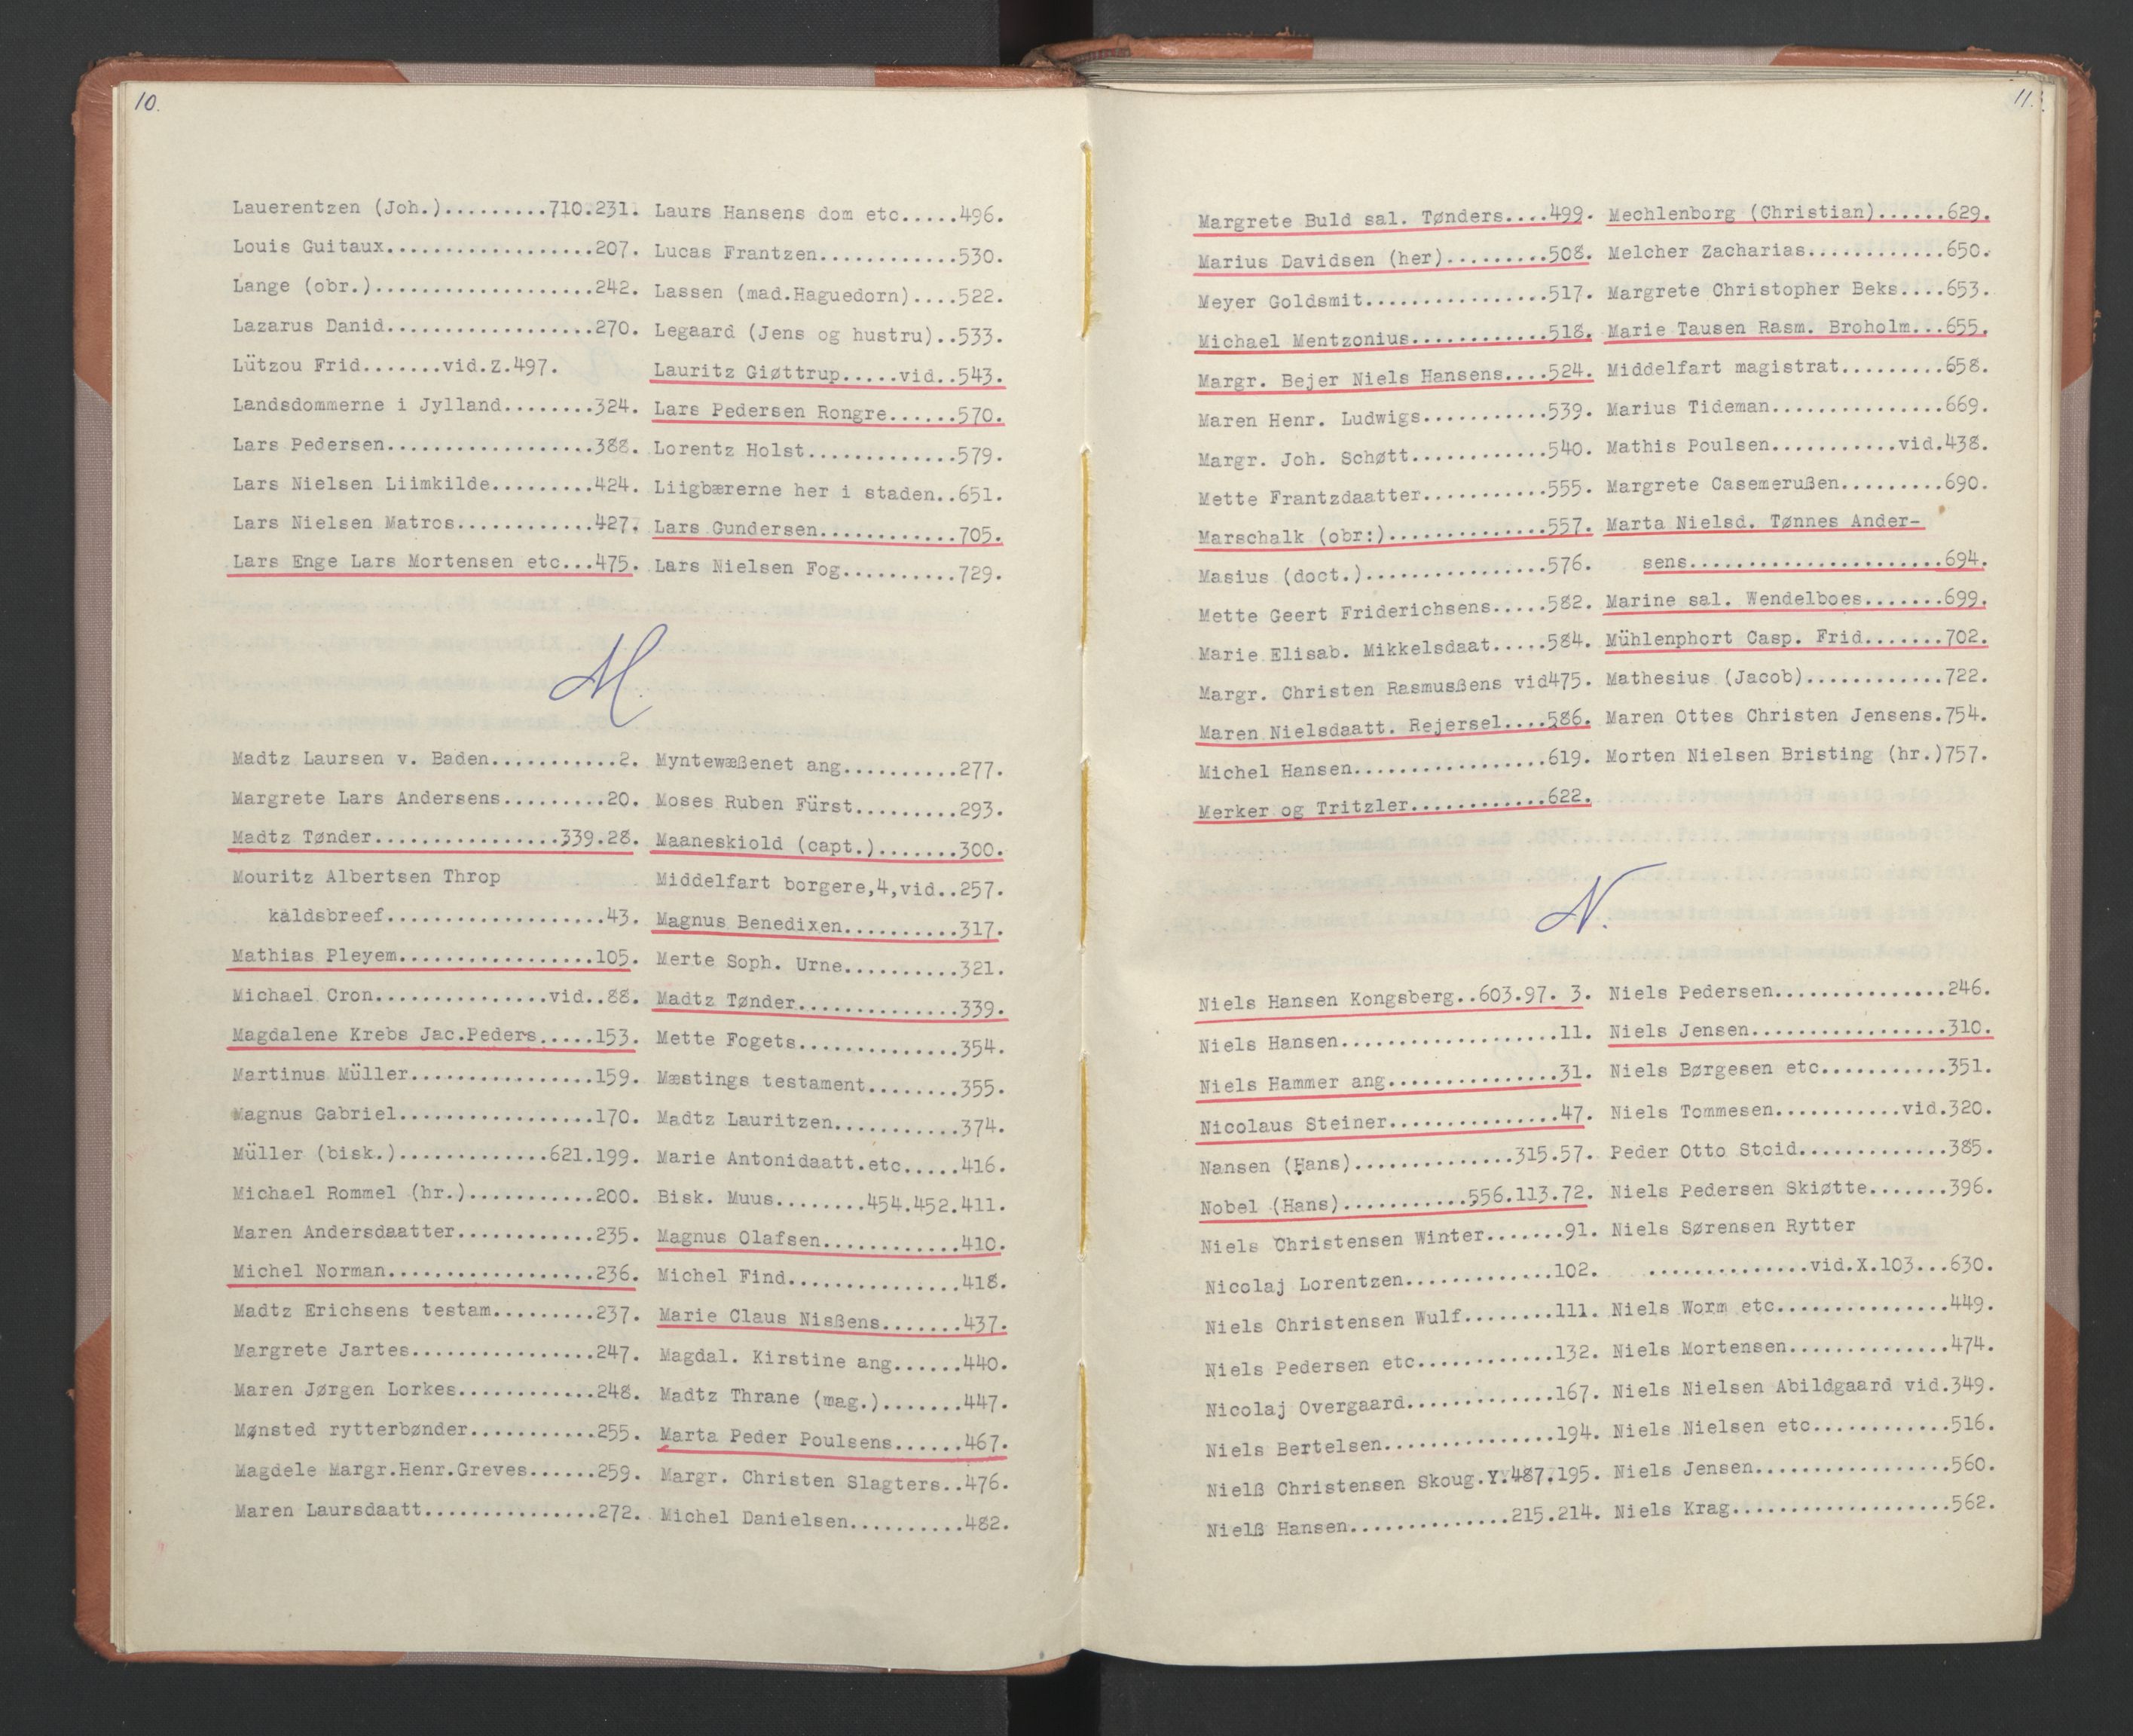 10.
Lauerentzen (Joh.).........710.231.
Louis Guitaux..................207.
Lange (obr.)...................242.
Lazarus Danid..................270.
Lützou Frid.......vid.Z.497.
Landsdommerne i Jylland........324.
Lars Pedersen..................388.
Lars Nielsen Liimkilde.........424.
Lars Nielsen Matros............427.
Lars Enge Lars Mortensen etc...475.
Laurs Hansens dom etc.....496.
Lucas Frantzen............530.
Lassen (mad.Haguedorn)....522.
Legaard (Jens og hustru)..533.
Lauritz Giøttrup.....vid..543.
Lars Pedersen Rongre......570.
Lorentz Holst.............579.
Liigbærerne her i staden..651.
Lars Gundersen............705.
Lars Nielsen Fog..........729.
M.
Madtz Laursen v. Baden...........2.
Margrete Lars Andersens.........20.
Madtz Tønder................339.28.
Mouritz Albertsen Throp
kaldsbreef...................43.
Mathias Pleyem.................105.
Michael Cron...............vid..88.
Magdalene Krebs Jac.Peders.....153.
Martinus Müller................159.
Magnus Gabriel.................170.
Müller (bisk.).............621.199.
Michael Rommel (hr.)...........200.
Maren Andersdaatter............235.
Michel Norman..................236.
Madtz Erichsens testam.........237.
Margrete Jartes................247.
Maren Jørgen Lorkes............248.
Mønsted rytterbønder...........255.
Magdele Margr.Henr.Greves......259.
Maren Laursdaatt...............272.
Myntewæßenet ang..........277.
Moses Ruben Fürst.........293.
Maaneskiold (capt.).......300.
Middelfart borgere,4,vid..257.
Magnus Benedixen..........317.
Merte Soph. Urne..........321.
Madtz Tønder..............339.
Mette Fogets..............354.
Mæstings testament........355.
Madtz Lauritzen...........374.
Marie Antonidaatt.etc.....416.
Bisk. Muus........454.452.411.
Magnus Olafsen............410.
Michel Find...............418.
Marie Claus Nisßens.......437.
Magdal. Kirstine ang......440.
Madtz Thrane (mag.).......447.
Marta Peder Poulsens......467.
Margr. Christen Slagters..476.
Michel Danielsen..........482.
11.
Margrete Buld sal. Tønders....499.
Marius Davidsen (her).........508.
Meyer Goldsmit................517.
Michael Mentzonius............518.
Margr. Bejer Niels Hansens....524.
Maren Henr. Ludwigs...........539.
Margr. Joh. Schøtt............540.
Mette Frantzdaatter...........555.
Marschalk (obr:)..............557.
Masius (doct.)................576.
Mette Geert Friderichsens.....582.
Marie Elisab. Mikkelsdaat.....584.
Margr. Christen Rasmusßens vid475.
Maren Nielsdaatt. Rejersel....586.
Michel Hansen.................619.
Merker og Tritzler............622.
Mechlenborg (Christian)......629.
Melcher Zacharias............650.
Margrete Christopher Beks....653.
Marie Tausen Rasm. Broholm...655.
Middelfart magistrat.........658.
Marius Tideman...............669.
Mathis Poulsen...........vid.438.
Margrete Casemerußen.........690.
Marta Nielsd. Tønnes Ander-
sens......................694.
Marine sal. Wendelboes.......699.
Mühlenphort Casp. Frid.......702.
Mathesius (Jacob)............722.
Maren Ottes Christen Jensens.754.
Morten Nielsen Bristing (hr.)757.
N.
Niels Hansen Kongsberg..603.97. 3.
Niels Hansen...................11.
Niels Hammer ang...............31.
Nicolaus Steiner...............47.
Nansen (Hans)..............315.57.
Nobel (Hans)...........556.113.72.
Niels Christensen Winter.......91.
Nicolaj Lorentzen.............102.
Niels Christensen Wulf........111.
Niels Pedersen etc............132.
Nicolaj Overgaard.............167.
Niels Bertelsen...............194.
Nielß Christensen Skoug.Y.487.195.
Nielß Hansen..............215.214.
Niels Pedersen...............246.
Niels Jensen.................310.
Niels Børgesen etc...........351.
Niels Tommesen...........vid.320.
Peder Otto Stoid.............385.
Niels Pedersen Skiøtte.......396.
Niels Sørensen Rytter
..............vid.X.103...630.
Niels Worm etc...............449.
Niels Mortensen..............474.
Niels Nielsen Abildgaard vid.349.
Niels Nielsen etc............516.
Niels Jensen.................560.
Niels Krag...................562.